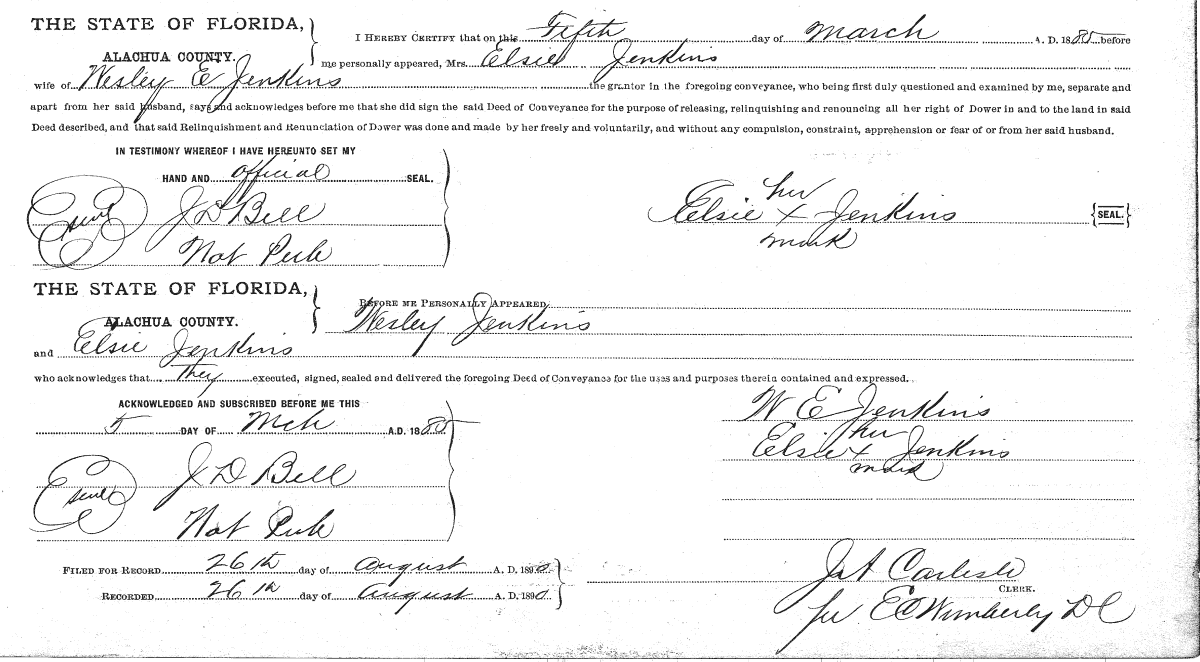 THE STATE OF FLORIDA,
ALACHUA COUNTY.
I HEREBY CERTIFY that on this Fifth day of March A. D. 1885 before
me personally appeared, Mrs. Elsie Jenkins
wife of Wesley E Jenkins the grantor in the foregoing conveyance, who being first duly questioned and examined by me, separate and
apart from her said husband, says and acknowledges before me that she did sign the said Deed of Conveyance for the purpose of releasing, relinquishing and renouncing all her right of Dower in and to the land in said
Deed described, and that said Relinquishment and Renunciation of Dower was done and made by her freely and voluntarily, and without any compulsion, constraint, apprehension or fear of or from her said husband.
IN TESTIMONY WHEREOF I HAVE HEREUNTO SET MY
HAND AND official SEAL.
J D Bell
Not Pub
her
Elsie x Jenkins {SEAL.}
mark
THE STATE OF FLORIDA,
ALACHUA COUNTY.
BEFORE ME PERSONALLY APPEARED
Wesley Jenkins
and Elsie Jenkins
who acknowledges that they executed, signed, sealed and delivered the foregoing Deed of Conveyance for the uses and purposes therein contained and expressed.
ACKNOWLEDGED AND SUBSCRIBED BEFORE ME THIS
5 DAY OF Mch A.D. 1885
J D Bell
Not Pub
W E Jenkins
her
Elsie x Jenkins
mark
FILED FOR RECORD 26th day of august A. D. 1890.
RECORDED 26th day of august A. D. 1890.
J A Carlisle
CLERK.
per E C Wimberly D C